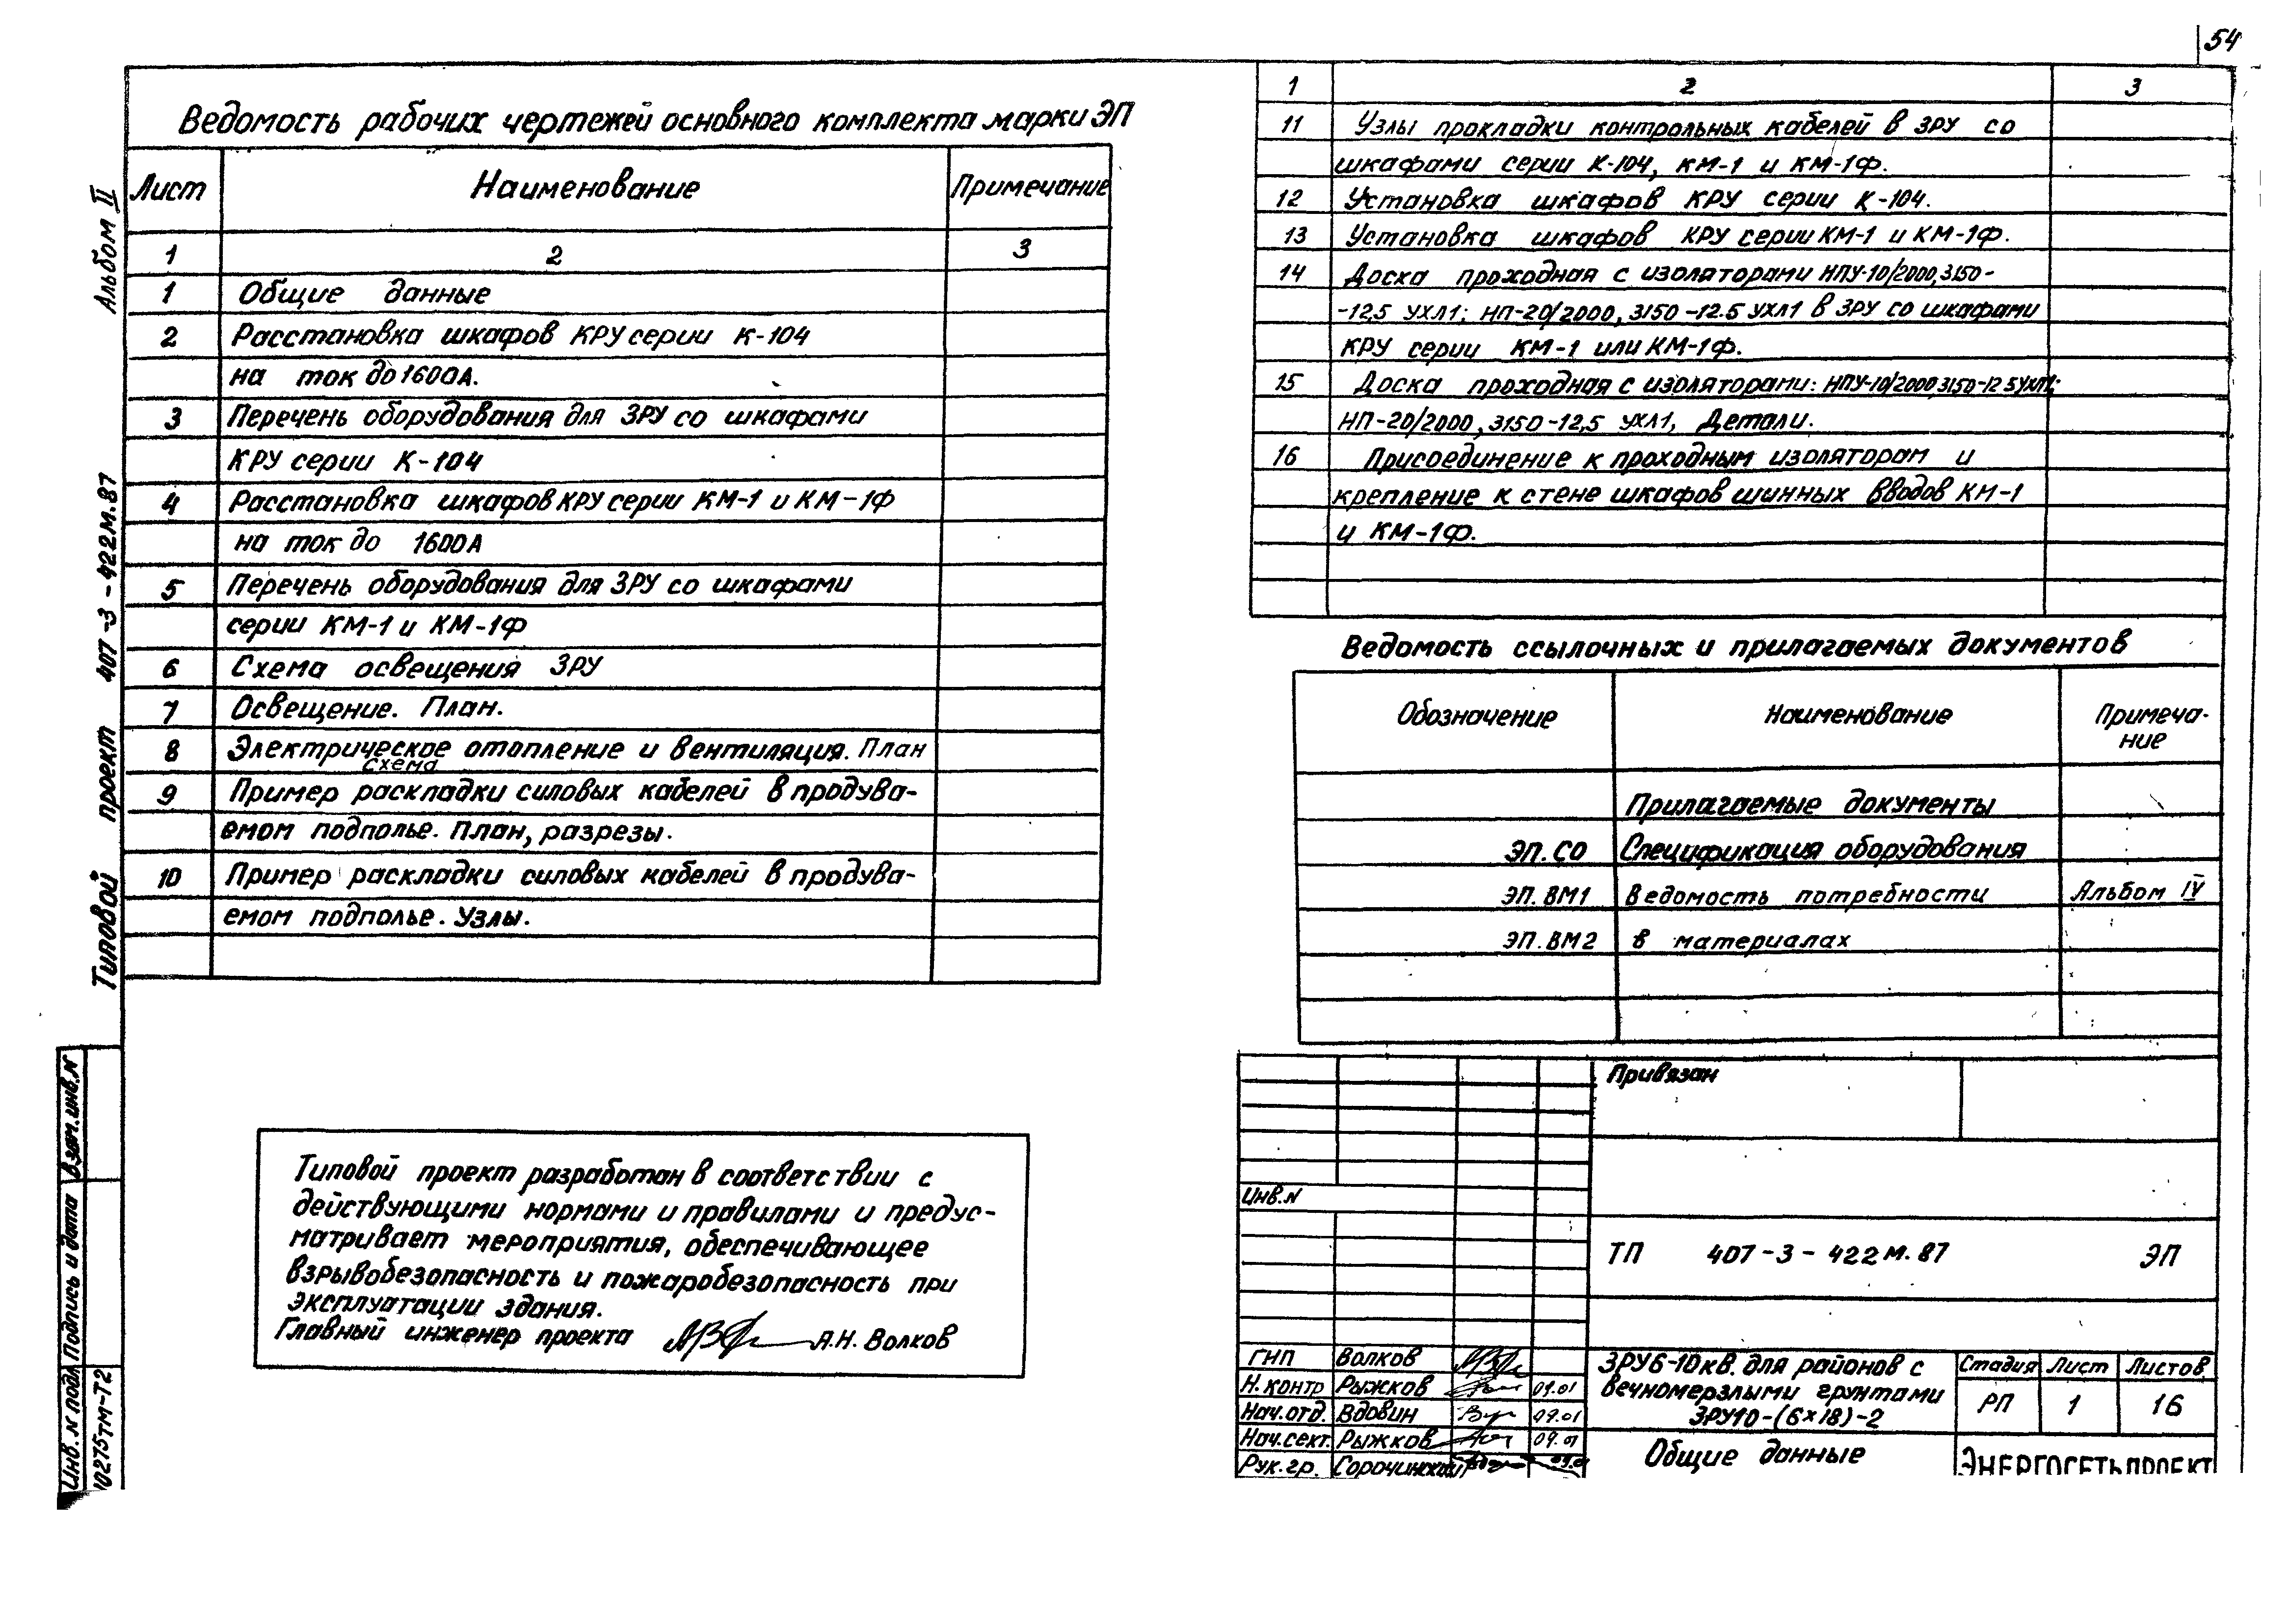 54
Альбом II
Типовой проект 407-3-422м.87
Взам.инв.N
Подпись и дата
Инв.N подл
10275тм-Т2
Ведомость рабочих чертежей основного комплекта марки ЭП
Лист Наименование Примечание
1 2 3
1 Общие данные
2 Расстановка шкафов КРУ серии К-104
на ток до 1600А.
3 Перечень оборудования для ЗРУ со шкафами
КРУ серии К-104
4 Расстановка шкафов КРУ серии КМ-1 и КМ-1Ф
на ток до 1600А
5 Перечень оборудования для ЗРУ со шкафами
серии КМ-1 и КМ-1Ф
6 Схема освещения ЗРУ
7 Освещение. План.
8 Электрическое отопление и вентиляция. План
схема
9 Пример раскладки силовых кабелей в продува-
емом подполье. План, разрезы.
10 Пример раскладки силовых кабелей в продува-
емом подполье. Узлы.
Типовой проект разработан в соответствии с
действующими нормами и правилами и предус-
матривает мероприятия, обеспечивающее
взрывобезопасность и пожаробезопасность при
эксплуатации здания.
Главный инженер проекта А.Н. Волков
1 2 3
11 Узлы прокладки контрольных кабелей в ЗРУ со
шкафами серии К-104, КМ-1 и КМ-1Ф.
12 Установка шкафов КРУ серии К-104.
13 Установка шкафов КРУ серии КМ-1 и КМ-1Ф.
14 Доска проходная с изоляторами НПУ-10/2000,3150-
-12,5 УХЛ1; НП-20/2000, 3150-12.5 УХЛ1 в ЗРУ со шкафами
КРУ серии КМ-1 или КМ-1Ф.
15 Доска проходная с изоляторами: НПУ-10/2000 3150-12 5УХЛ1;
НП-20/2000, 3150-12,5 УХЛ1, Детали.
16 Присоединение к проходным изоляторам и
крепление к стене шкафов шинных вводов КМ-1
и КМ-1Ф.
Ведомость ссылочных и прилагаемых документов
Обозначение Наименование Примеча-
ние
Прилагаемые документы
ЭП.СО Спецификация оборудования
ЭП.ВМ1 Ведомость потребности Альбом IV
ЭП.ВМ2 в материалах
Привязан
Инв.N
ТП 407-3-422м.87 ЭП
ГИП Волков
Н.контр Рыжков 09.01
Нач.отд. Вдовин 09.01
Нач.сект. Рыжков 09.01
Рук.гр. Сорочинский
ЗРУ6-10кв. для районов с
вечномерзлыми грунтами
ЗРУ10-(6×18)-2
Стадия Лист Листов
РП 1 16
Общие данные
ЭНЕРГОСЕТЬПРОЕКТ